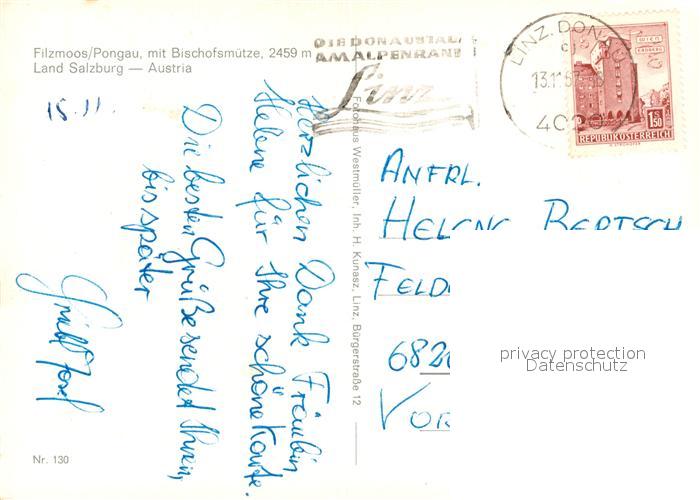 Filzmoos/Pongau, mit Bischofsmütze, 2459 m
Land Salzburg — Austria
15.11.
Herzlichen Dank Fräulein
Helene für Ihre schöne Karte.
Die besten Grüße sendet Ihnen,
bis später
Josef
Nr. 130
Fotohaus Westmüller, Inh. H. Kunasz, Linz, Bürgerstraße 12
DIE DONAUSTADT
AM ALPENRAND
Linz
LINZ, DON
13.11.
4020
WIEN
ERDBERG
1.50
REPUBLIK ÖSTERREICH
AN FRL.
HELENE BERTSCH
FELD
682
VOR
privacy protection
Datenschutz